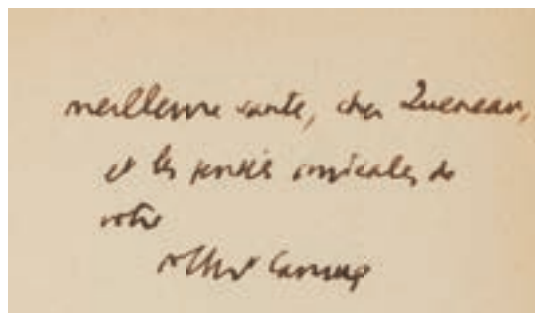 meilleure santé, cher Queneau,
et les pensées amicales de
votre
Albert Camus